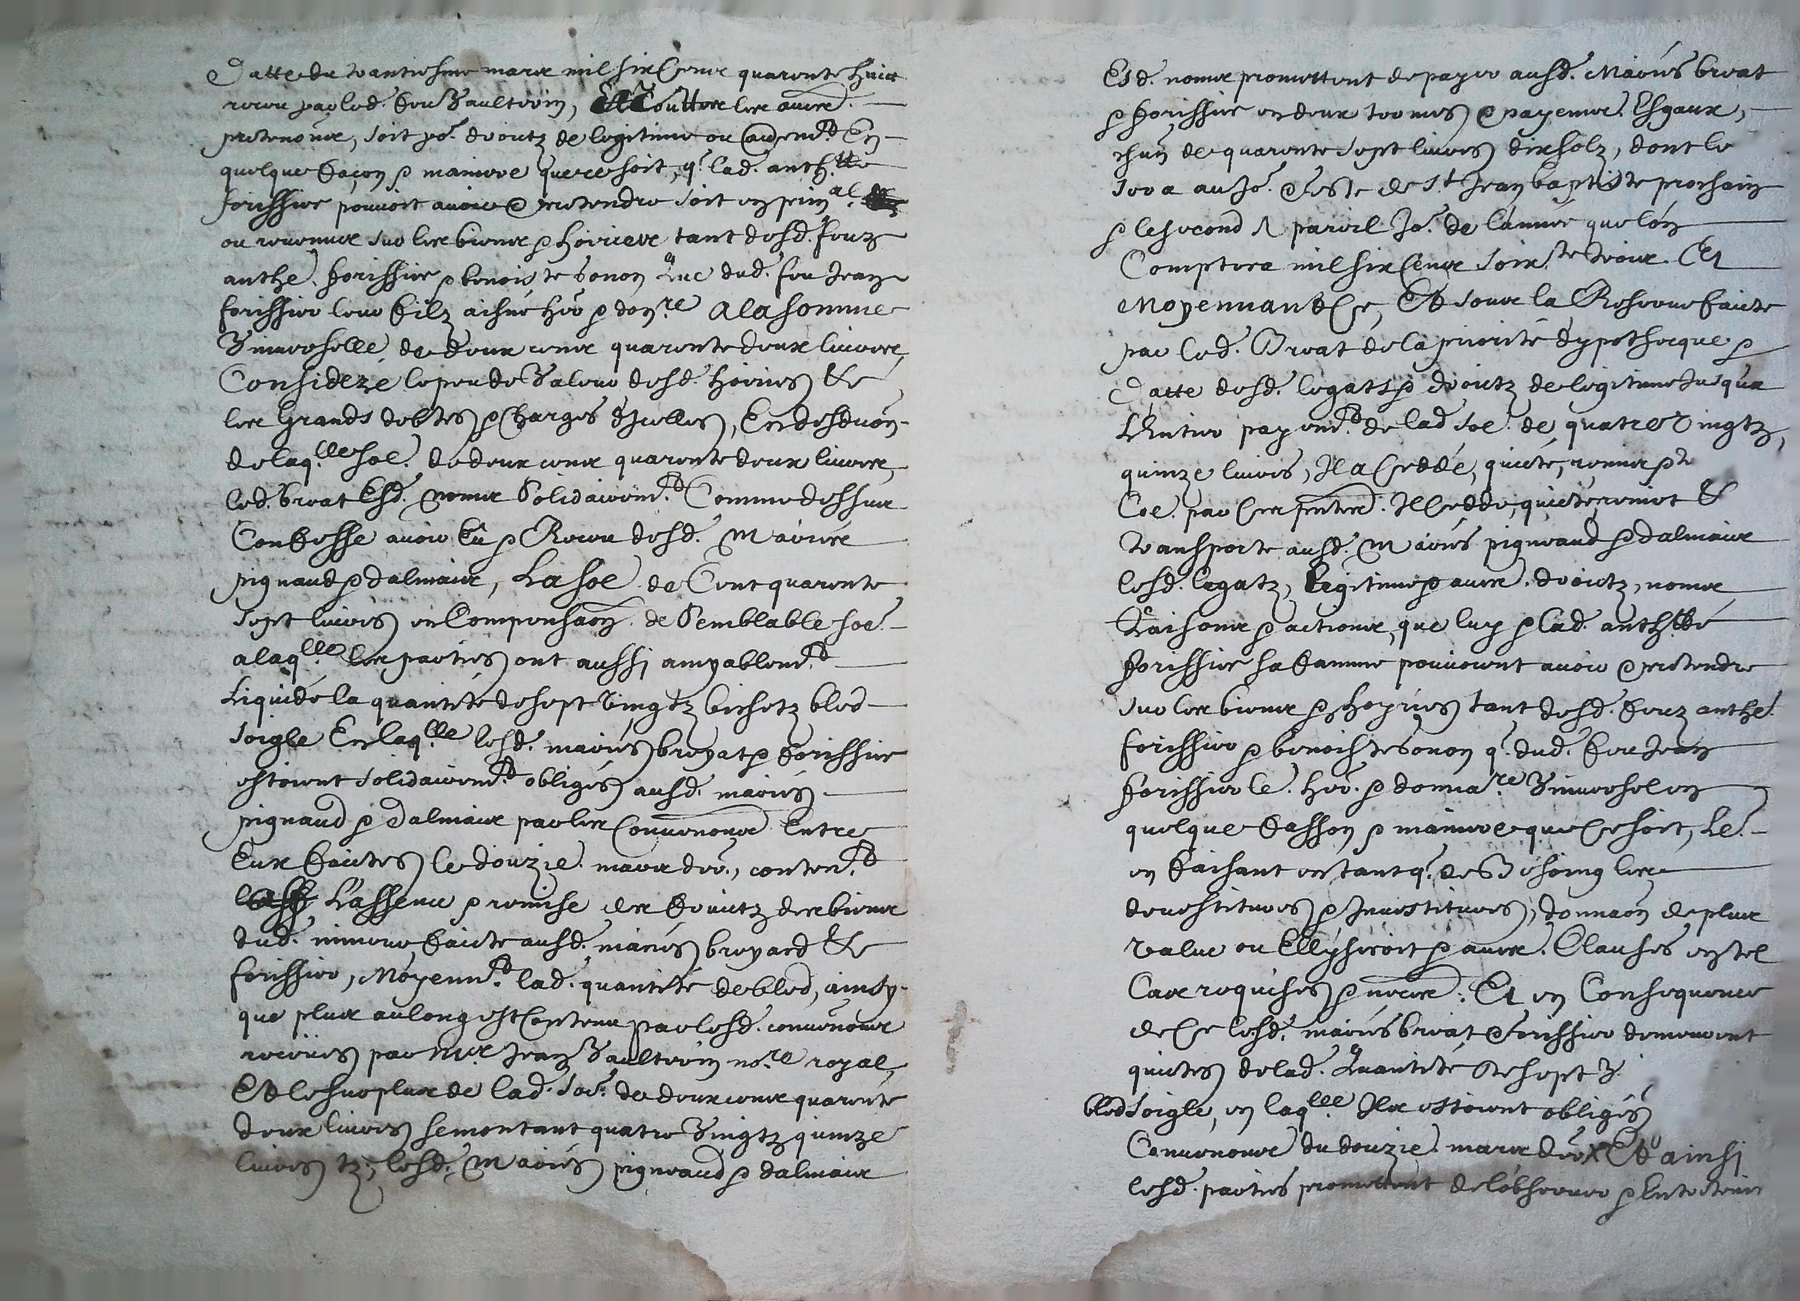 Datte du trantiesme mars mil six cens quarente huict
receu par led. feu Vaultrin, Et touttes les autres
pretentions, soit po.r droictz de legitime ou aultrem.t En
quelque façon & maniere que ce soit, q.e lad. anth.tte
forissier pouvoit avoir & pretendre soit en prin.al
ou revenus sur les biens & hoiries tant desd. feuz
anthe. forissier & benoiste sonon Que dud. feu Jean
forissier leur filz aisné her. & don.re A la somme
Universelle de deux cens quarente deux livres,
Consideré le peu de valeur desd. hoiries &
les Grands debtes & charges d'Icelles, En desduon
de laq.lle soe. de deux cens quarente deux livres,
led. broat Esd. noms Solidairem.t Comme dessus
Confesse avoir Eu & Receu desd. Mariés
pignaud & dalmais, La soe. de Cent quarente
sept livres en Compensaon de Semblable soe.
a laq.lle les parties ont aussi amyablem.t
Liquidé la quantité de sept vingtz bichetz bled
soigle En laq.lle lesd. mariés broyat & forissier
estoient solidairem.t obligés ausd. mariés
pignaud & dalmais par les Conventions Entre
Eux faictes le douzie. mars der., conten.t
L'assence promise des fruictz des biens
dud. mineur faicte ausd. mariés broyard &
forissier, Moyenn.t lad. quantité de bled, ainsy
que plus au long est contenu par lesd. conventions
receues par Me Jean Vaultrin no.re royal,
Et le surplus de lad. soe. de deux cens quarente
deux livres se montant quatre vingtz quinze
livres tz, lesd. Mariés pigneaud & dalmais
Esd. noms promettent de payer ausd. Mariés broat
& forissier en deux termes & payemens Esgaux,
chun de quarente sept livres dix solz, dont le
sera au Jo.r & feste de S.t Jean baptiste prochain
& le second A pareil Jo.r de l'année que l'on
Comptera mil six cens soix.te deux. Et
Moyennant Ce, Et sous la Reserve faicte
par led. Broat de la priorité d'ypothecque &
Datte desd. legats & droictz de legitime Jusqu'a
L'Entier payem.t de lad. soe. de quatre vingtz
quinze livres, Il a Ceddé, quicté, remis &
Coe. par Ces pntes. Il Cedde, quicte, remet &
transporte ausd. Mariés pigneaud & dalmais
lesd. legatz, legitime & autres droictz, noms
Raisons & actions, que luy & lad. anth.tte
forissier sa famme pouvoient avoir & pretendre
sur les biens & hoyries tant desd. feuz anthe.
forissier & benoiste sonon q.e dud. feu Jean
forissier le. her. & donna.re Universel en
quelque fasson & maniere que Ce soit, Le.
en faisant en tant q.e de Besoing les
devestitures & Investitures, donnaon de plus
value ou Elly seroit & autres Clauses en tel
Cas requises & necess.: Et en Consequence
de Ce lesd. mariés broat & forissier demeurent
quictes de lad. Quantité de sept V.
bled soigle, en laq.lle Ils estoient obligés
Conventions du douzie. mars der. Et ainsi
lesd. parties promettent de l'observer & Entretenir